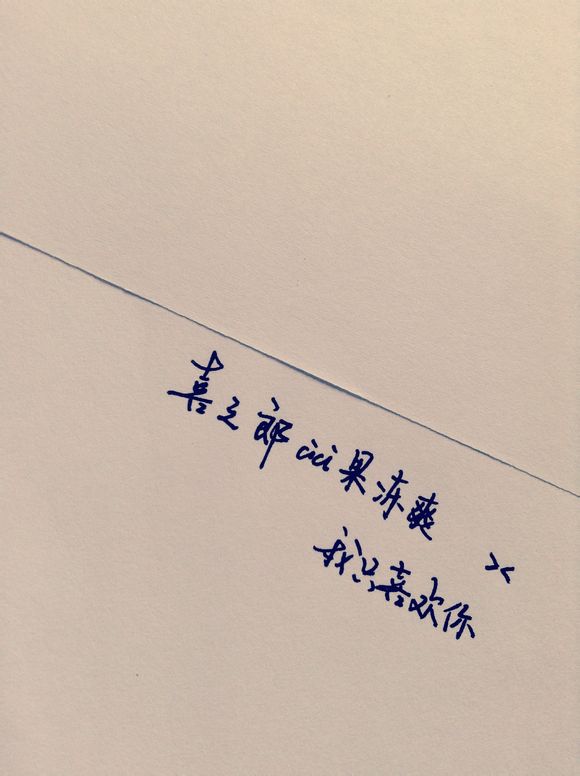 喜之郎cici果冻爽
我只喜欢你
><